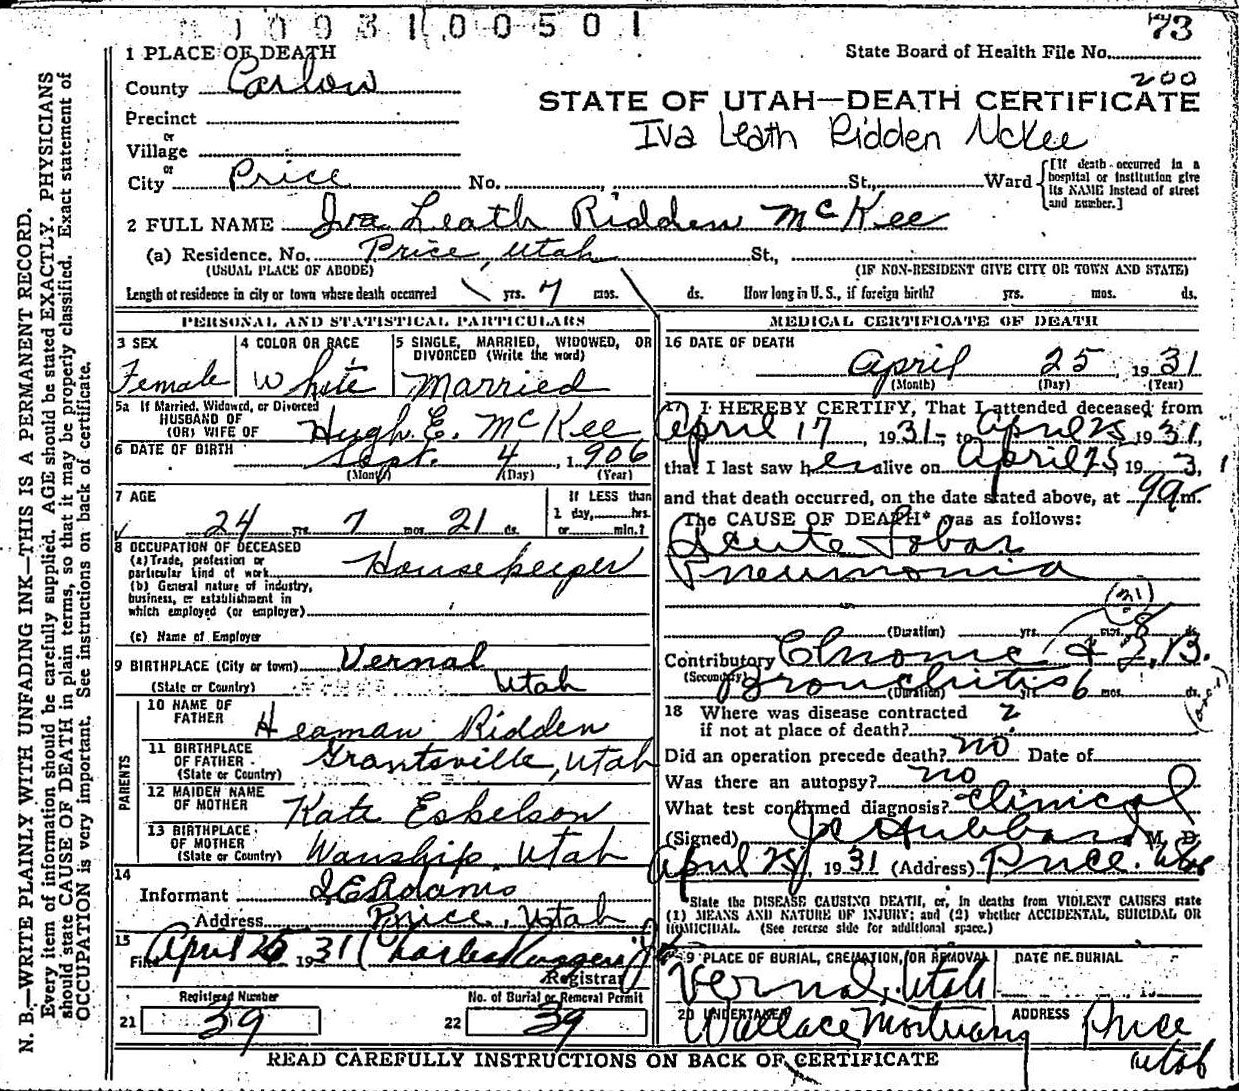 1 0 0 9 3 1 0 0 5 0 1
73
1 PLACE OF DEATH
State Board of Health File No.
County Carbon
200
STATE OF UTAH—DEATH CERTIFICATE
Precinct
Iva Leath Ridden McKee
or
Village
or
City Price No. St., Ward
[If death occurred in a hospital or institution give its NAME instead of street and number.]
2 FULL NAME Iva Leath Ridden McKee
(a) Residence. No. Price, Utah St.,
(USUAL PLACE OF ABODE) (IF NON-RESIDENT GIVE CITY OR TOWN AND STATE)
Length of residence in city or town where death occurred yrs. 7 mos. ds. How long in U. S., if foreign birth? yrs. mos. ds.
PERSONAL AND STATISTICAL PARTICULARS
3 SEX
Female
4 COLOR OR RACE
White
5 SINGLE, MARRIED, WIDOWED, OR DIVORCED (Write the word)
Married
5a If Married, Widowed, or Divorced
HUSBAND OF
(OR) WIFE OF Hugh E. McKee
6 DATE OF BIRTH Sept. 4, 1906
(Month) (Day) (Year)
7 AGE
24 yrs. 7 mos. 21 ds.
If LESS than
1 day, hrs.
or min.?
8 OCCUPATION OF DECEASED
(a) Trade, profession or
particular kind of work Housekeeper
(b) General nature of industry,
business, or establishment in
which employed (or employer)
(c) Name of Employer
9 BIRTHPLACE (City or town) Vernal
(State or Country) Utah
PARENTS
10 NAME OF FATHER Heaman Ridden
11 BIRTHPLACE OF FATHER Grantsville, Utah
(State or Country)
12 MAIDEN NAME OF MOTHER Kate Eskelson
13 BIRTHPLACE OF MOTHER
(State or Country) Wanship, Utah
14
Informant Adams
Address Price, Utah
15
Filed April 1931 Charles
Registrar
Registered Number
21 39
No. of Burial or Removal Permit
22 39
MEDICAL CERTIFICATE OF DEATH
16 DATE OF DEATH
April 25, 1931
(Month) (Day) (Year)
17 I HEREBY CERTIFY, That I attended deceased from
April 17, 1931, to April 25 1931,
that I last saw her alive on April 25 1931
and that death occurred, on the date stated above, at m.
The CAUSE OF DEATH* was as follows:
Acute Lobar
Pneumonia
(31)
(Duration) yrs. mos. 8 ds.
Contributory Chronic
(Secondary) Bronchitis
(Duration) yrs. 6 mos. ds.
18 Where was disease contracted
if not at place of death? ?
Did an operation precede death? no Date of
Was there an autopsy? no
What test confirmed diagnosis? Clinical
(Signed) Hubbard, M. D.
April 25, 1931 (Address) Price. Utah
*State the DISEASE CAUSING DEATH, or, in deaths from VIOLENT CAUSES state
(1) MEANS AND NATURE OF INJURY; and (2) whether ACCIDENTAL, SUICIDAL OR
HOMICIDAL. (See reverse side for additional space.)
19 PLACE OF BURIAL, CREMATION, OR REMOVAL DATE OF BURIAL
Vernal, Utah
20 UNDERTAKER ADDRESS
Wallace Mortuary Price
Utah
READ CAREFULLY INSTRUCTIONS ON BACK OF CERTIFICATE
N. B.—WRITE PLAINLY WITH UNFADING INK—THIS IS A PERMANENT RECORD.
Every item of information should be carefully supplied. AGE should be stated EXACTLY. PHYSICIANS
should state CAUSE OF DEATH in plain terms, so that it may be properly classified. Exact statement of
OCCUPATION is very important. See instructions on back of certificate.